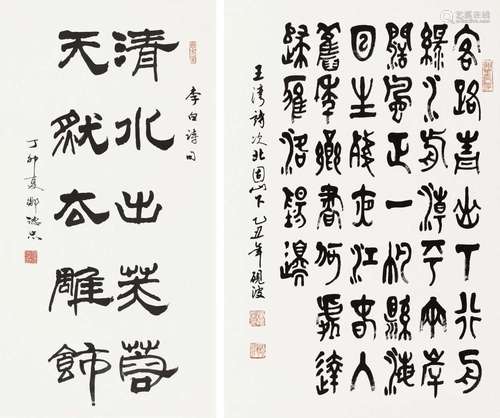 客路青山下行舟
緑水前潮平兩岸
闊風正一帆懸海
日生殘夜江春入
舊年鄉書何處達
歸雁洛陽邊
王灣詩次北固山下 乙丑年硯波
李白詩句
清水出芙蓉
天然去雕飾
丁卯夏鄭